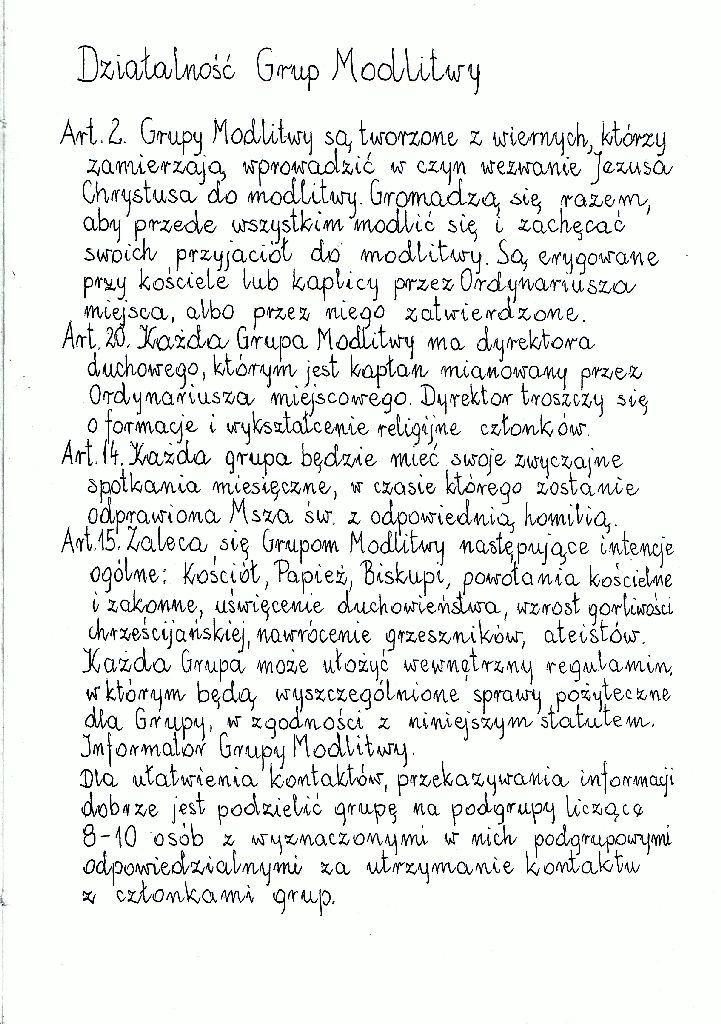 Działalność Grup Modlitwy
Art. 2. Grupy Modlitwy są tworzone z wiernych, którzy
zamierzają wprowadzić w czyn wezwanie Jezusa
Chrystusa do modlitwy. Gromadzą się razem,
aby przede wszystkim modlić się i zachęcać
swoich przyjaciół do modlitwy. Są erygowane
przy kościele lub kaplicy przez Ordynariusza
miejsca, albo przez niego zatwierdzone.
Art. 20. Każda Grupa Modlitwy ma dyrektora
duchowego, którym jest kapłan mianowany przez
Ordynariusza miejscowego. Dyrektor troszczy się
o formacje i wykształcenie religijne członków.
Art. 14. Każda grupa będzie mieć swoje zwyczajne
spotkania miesięczne, w czasie którego zostanie
odprawiona Msza św. z odpowiednią homilią.
Art. 15. Zaleca się Grupom Modlitwy następujące intencje
ogólne: Kościół, Papież, Biskupi, powołania kościelne
i zakonne, uświęcenie duchowieństwa, wzrost gorliwości
chrześcijańskiej, nawrócenie grzeszników, ateistów.
Każda Grupa może ułożyć wewnętrzny regulamin,
w którym będą wyszczególnione sprawy pożyteczne
dla Grupy, w zgodności z niniejszym statutem.
Informator Grupy Modlitwy.
Dla ułatwienia kontaktów, przekazywania informacji
dobrze jest podzielić grupę na podgrupy liczące
8-10 osób z wyznaczonymi w nich podgrupowymi
odpowiedzialnymi za utrzymanie kontaktu
z członkami grup.